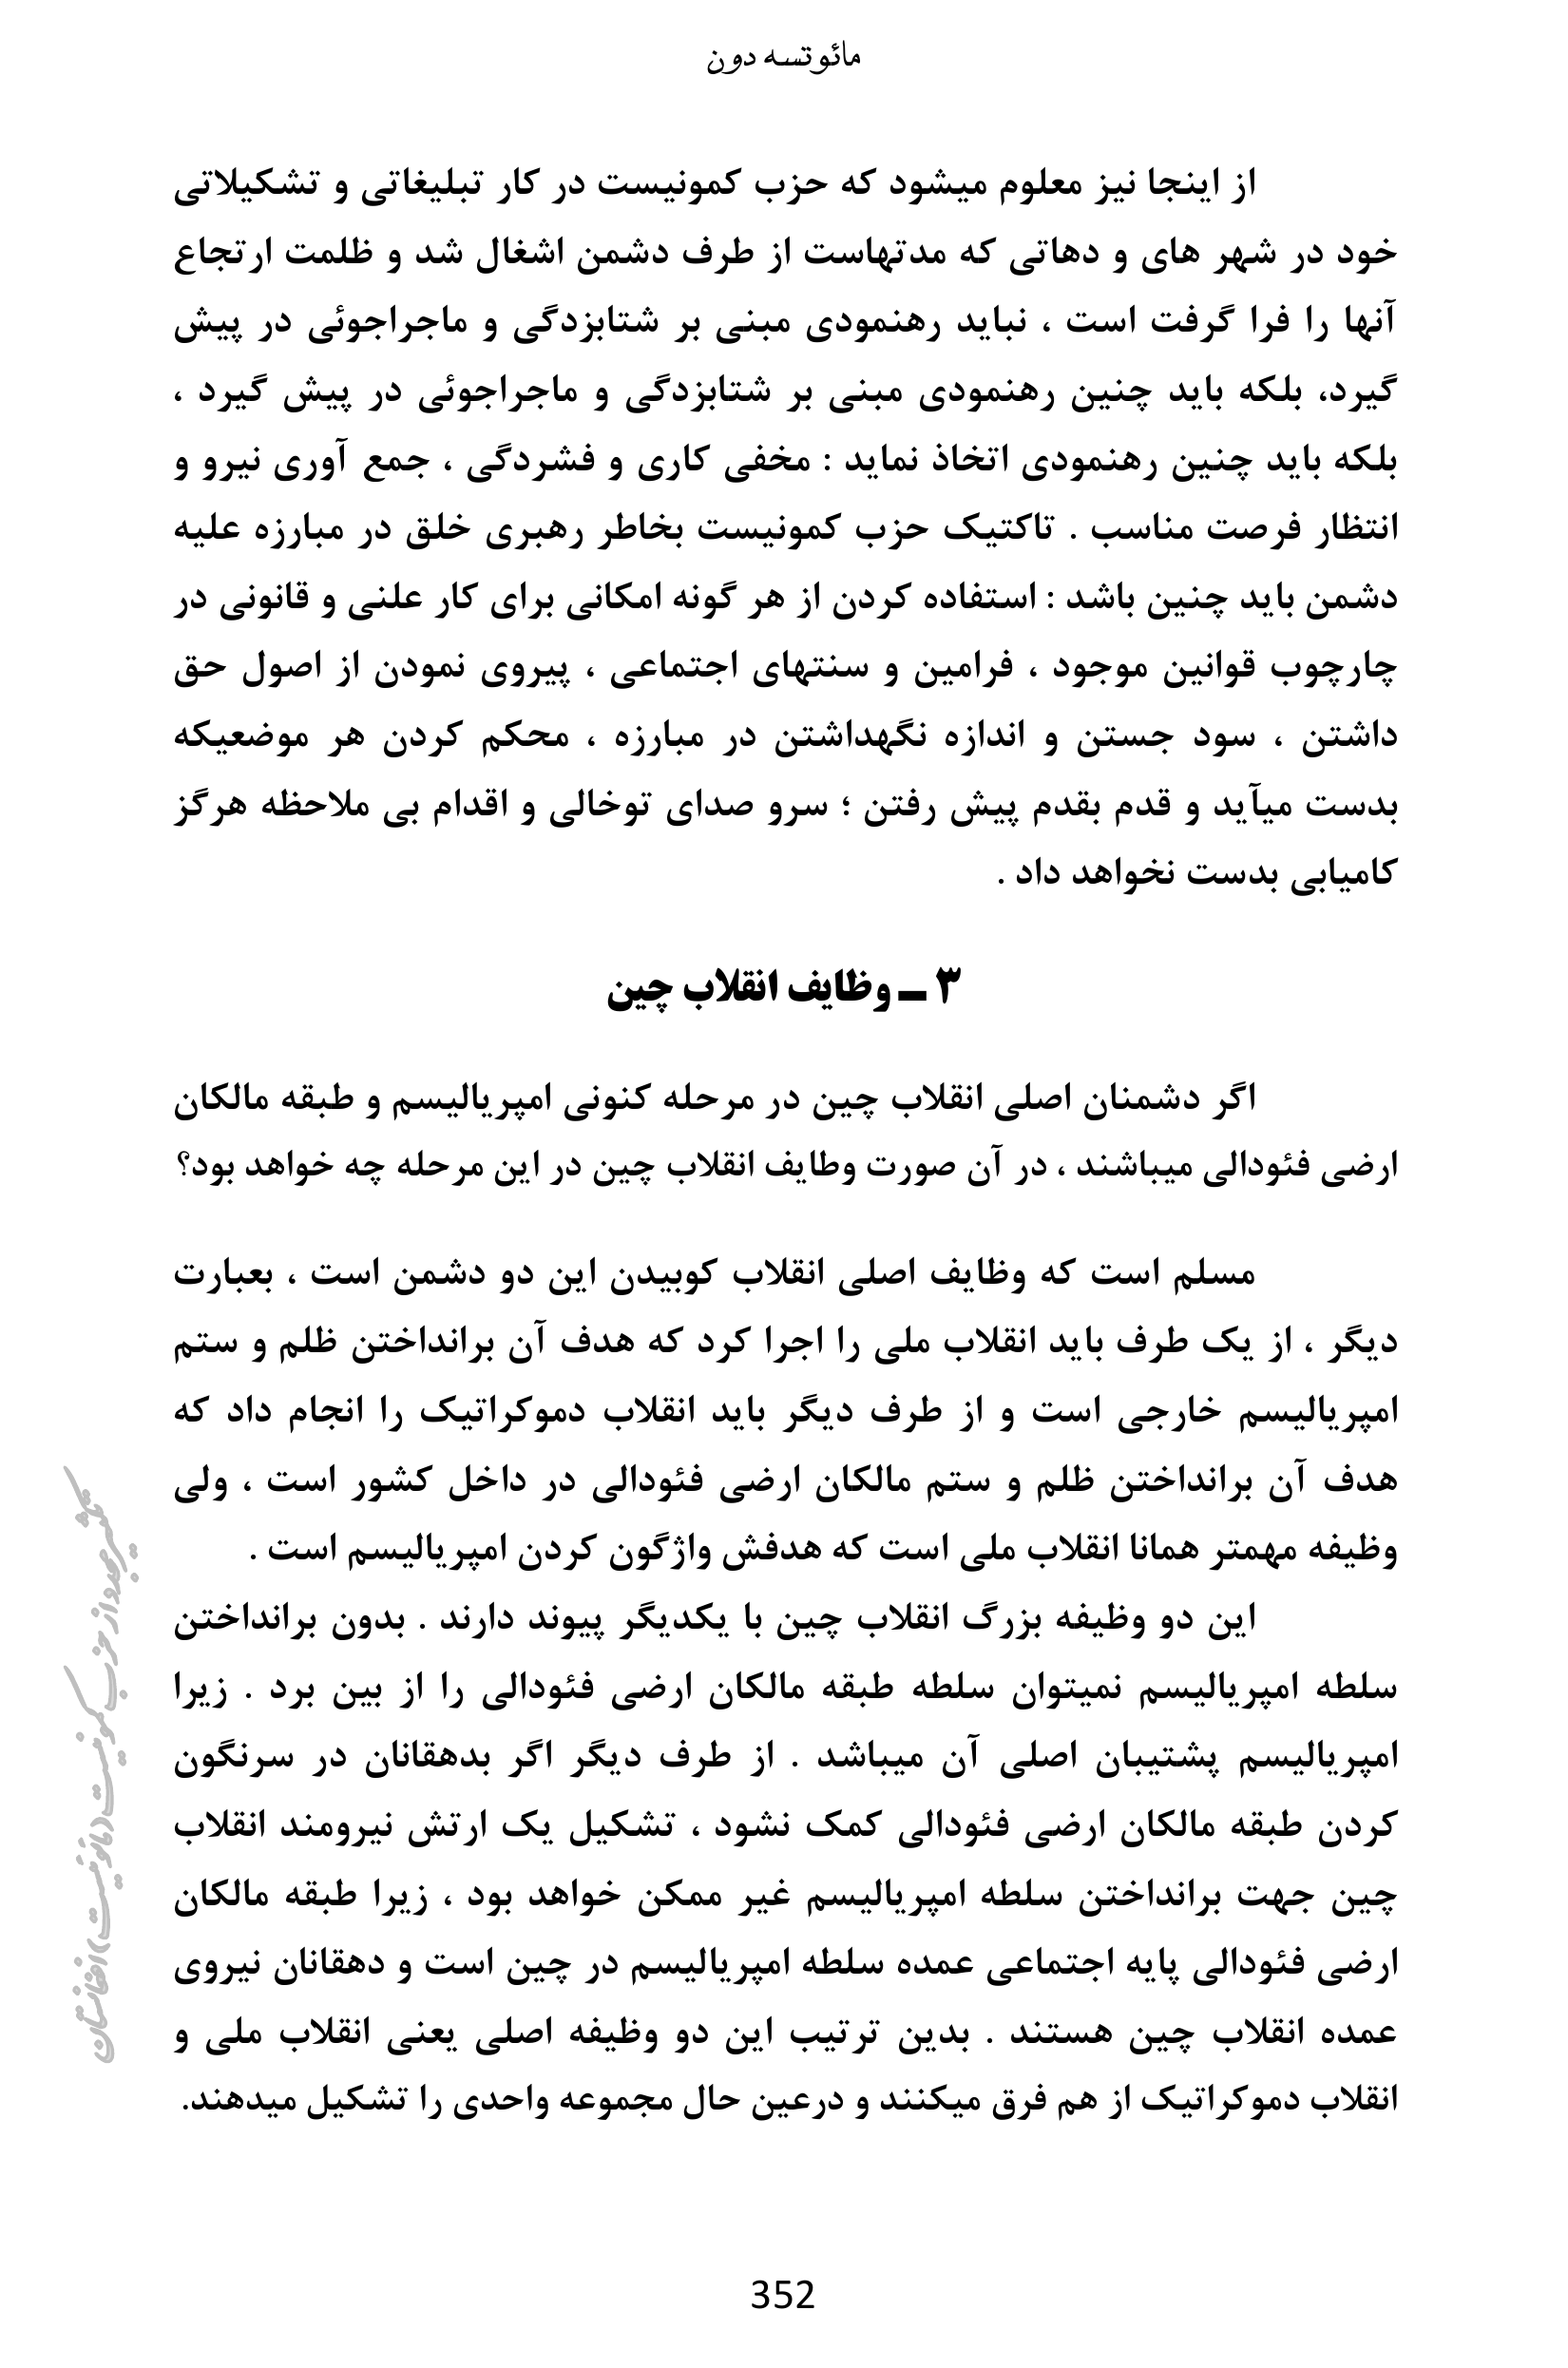 مائوتسه دون
از اینجا نیز معلوم میشود که حزب کمونیست در کار تبلیغاتی و تشکیلاتی
خود در شهر های و دهاتی که مدتهاست از طرف دشمن اشغال شد و ظلمت ارتجاع
آنها را فرا گرفت است ، نباید رهنمودی مبنی بر شتابزدگی و ماجراجوئی در پیش
گیرد، بلکه باید چنین رهنمودی مبنی بر شتابزدگی و ماجراجوئی در پیش گیرد ،
بلکه باید چنین رهنمودی اتخاذ نماید : مخفی کاری و فشردگی ، جمع آوری نیرو و
انتظار فرصت مناسب . تاکتیک حزب کمونیست بخاطر رهبری خلق در مبارزه علیه
دشمن باید چنین باشد : استفاده کردن از هر گونه امکانی برای کار علنی و قانونی در
چارچوب قوانین موجود ، فرامین و سنتهای اجتماعی ، پیروی نمودن از اصول حق
داشتن ، سود جستن و اندازه نگهداشتن در مبارزه ، محکم کردن هر موضعیکه
بدست میآید و قدم بقدم پیش رفتن ؛ سرو صدای توخالی و اقدام بی ملاحظه هرگز
کامیابی بدست نخواهد داد .
۳ ــ وظایف انقلاب چین
اگر دشمنان اصلی انقلاب چین در مرحله کنونی امپریالیسم و طبقه مالکان
ارضی فئودالی میباشند ، در آن صورت وطایف انقلاب چین در این مرحله چه خواهد بود؟
مسلم است که وظایف اصلی انقلاب کوبیدن این دو دشمن است ، بعبارت
دیگر ، از یک طرف باید انقلاب ملی را اجرا کرد که هدف آن برانداختن ظلم و ستم
امپریالیسم خارجی است و از طرف دیگر باید انقلاب دموکراتیک را انجام داد که
هدف آن برانداختن ظلم و ستم مالکان ارضی فئودالی در داخل کشور است ، ولی
وظیفه مهمتر همانا انقلاب ملی است که هدفش واژگون کردن امپریالیسم است .
این دو وظیفه بزرگ انقلاب چین با یکدیگر پیوند دارند . بدون برانداختن
سلطه امپریالیسم نمیتوان سلطه طبقه مالکان ارضی فئودالی را از بین برد . زیرا
امپریالیسم پشتیبان اصلی آن میباشد . از طرف دیگر اگر بدهقانان در سرنگون
کردن طبقه مالکان ارضی فئودالی کمک نشود ، تشکیل یک ارتش نیرومند انقلاب
چین جهت برانداختن سلطه امپریالیسم غیر ممکن خواهد بود ، زیرا طبقه مالکان
ارضی فئودالی پایه اجتماعی عمده سلطه امپریالیسم در چین است و دهقانان نیروی
عمده انقلاب چین هستند . بدین ترتیب این دو وظیفه اصلی یعنی انقلاب ملی و
انقلاب دموکراتیک از هم فرق میکنند و درعین حال مجموعه واحدی را تشکیل میدهند.
تکثیر مجدد از حزب کمونیست (مائوئیست) افغانستان
352